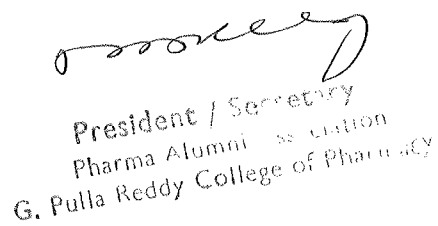 President / Secretary
Pharma Alumni
G. Pulla Reddy College of Pharmacy